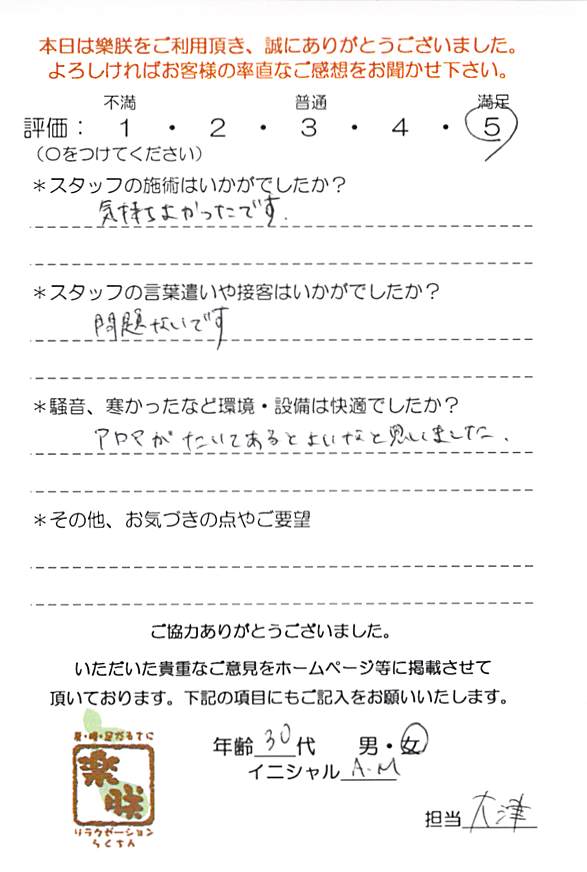 本日は樂朕をご利用頂き、誠にありがとうございました。
よろしければお客様の率直なご感想をお聞かせ下さい。
不満 普通 満足
評価: 1 ・ 2 ・ 3 ・ 4 ・ 5
(〇をつけてください)
*スタッフの施術はいかがでしたか?
気持ちよかったです.
*スタッフの言葉遣いや接客はいかがでしたか?
問題ないです
*騒音、寒かったなど環境・設備は快適でしたか?
アロマがたいてあるとよいなと思いました.
*その他、お気づきの点やご要望
ご協力ありがとうございました。
いただいた貴重なご意見をホームページ等に掲載させて
頂いております。下記の項目にもご記入をお願いいたします。
年齢30代 男・女
イニシャル A.M
樂朕
リラクゼーション
らくちん
担当 大津